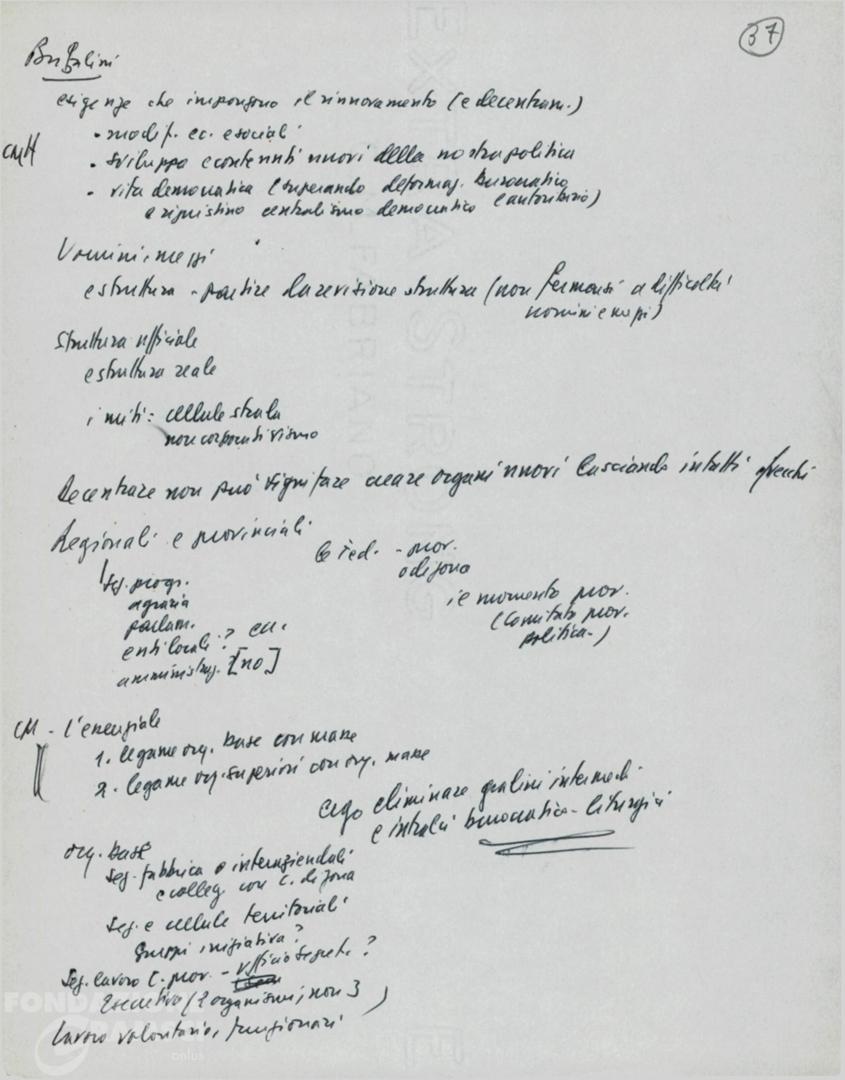 37
Bufalini
esigenze che impongono il rinnovamento (e decentram.)
• modif. ec. e sociali
CM
• sviluppo e contenuti nuovi della nostra politica
• vita democratica (superando deformaz. burocratico
e ripristino centralismo democratico (autoritario)
Uomini, mezzi
e struttura - partire da revisione struttura (non fermarsi a difficoltà
uomini e mezzi)
Struttura ufficiale
e struttura reale
i miti: cellule strada
non corporativismo
Decentrare non può significare creare organi nuovi lasciando intatti i vecchi
Regionali e provinciali
le Fed. - prov.
o di zona
Sez. progr.
agraria
parlam.
enti locali ? ecc.
amministraz. [no]
il momento prov.
(Comitato prov.
politica-)
CM - L'essenziale
1. legame org. base con masse
2. legame org. superiori con org. masse
ergo eliminare gradini intermedi
e intralci burocratico-liturgici
org. base
Sez. fabbrica o interaziendali
e colleg. con C. di zona
Sez. e cellule territoriali
Gruppi iniziativa?
Sez. lavoro C. prov. - Ufficio Segret. ?
Esecutivo (2 organismi, non 3)
Lavoro volontario, funzionari
FONDAZIONE
GRAMSCI
onlus
EXTRA STRONG
FABRIANO